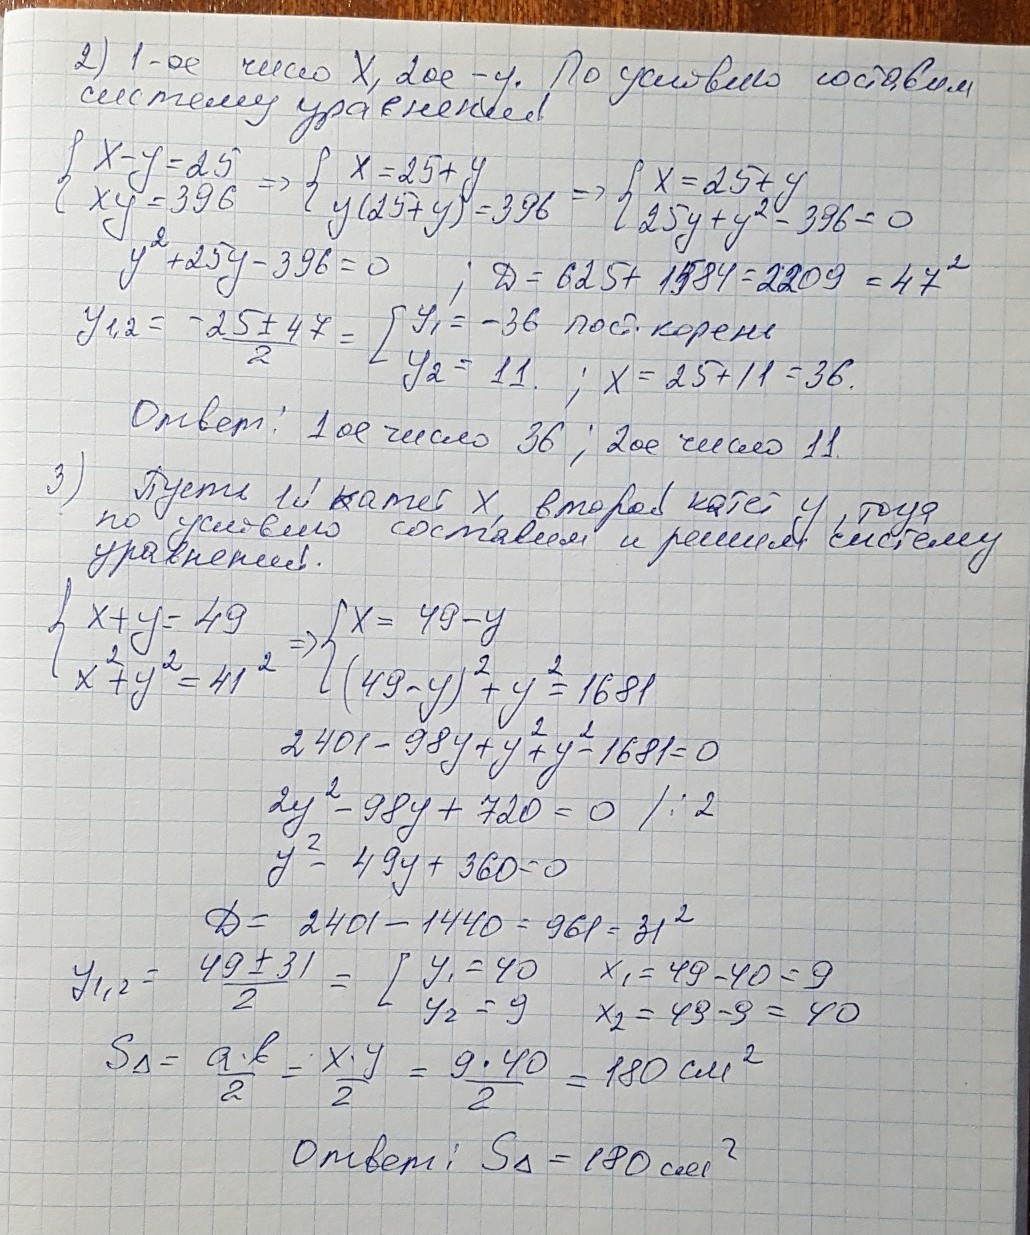 2) 1-ое число X, 2ое – y. По условию составим
систему уравнений
{ x-y=25 => { x=25+y => { x=25+y
{ xy=396 { y(25+y)=396 { 25y+y²-396=0
y²+25y-396=0 ; D=625+1584=2209=47²
y₁,₂ = (-25±47)/2 = [ y₁=-36 пост. корень
[ y₂=11. ; x=25+11=36.
Ответ: 1ое число 36; 2ое число 11.
3) Пусть 1й катет X, второй катет y, тогда
по условию составим и решим систему
уравнений.
{ x+y=49 => { x=49-y
{ x²+y²=41² { (49-y)²+y²=1681
2401-98y+y²+y²-1681=0
2y²-98y+720=0 /:2
y²-49y+360=0
D=2401-1440=961=31²
y₁,₂ = (49±31)/2 = [ y₁=40 x₁=49-40=9
[ y₂=9 x₂=49-9=40
S∆ = a·b/2 = x·y/2 = 9·40/2 = 180 см²
Ответ: S∆=180 см²